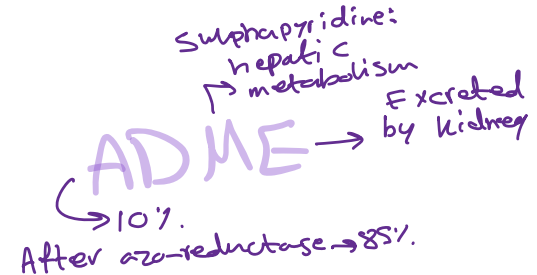 sulphapyridine:
hepatic
metabolism
ADME
Excreted
by kidney
10%.
After azo-reductase → 85%.